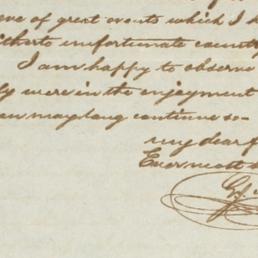 eve of great events which I h
itherto unfortunate country
I am happy to observe
ly were in the enjoyment
may long continue so-
my dear f
Ever most